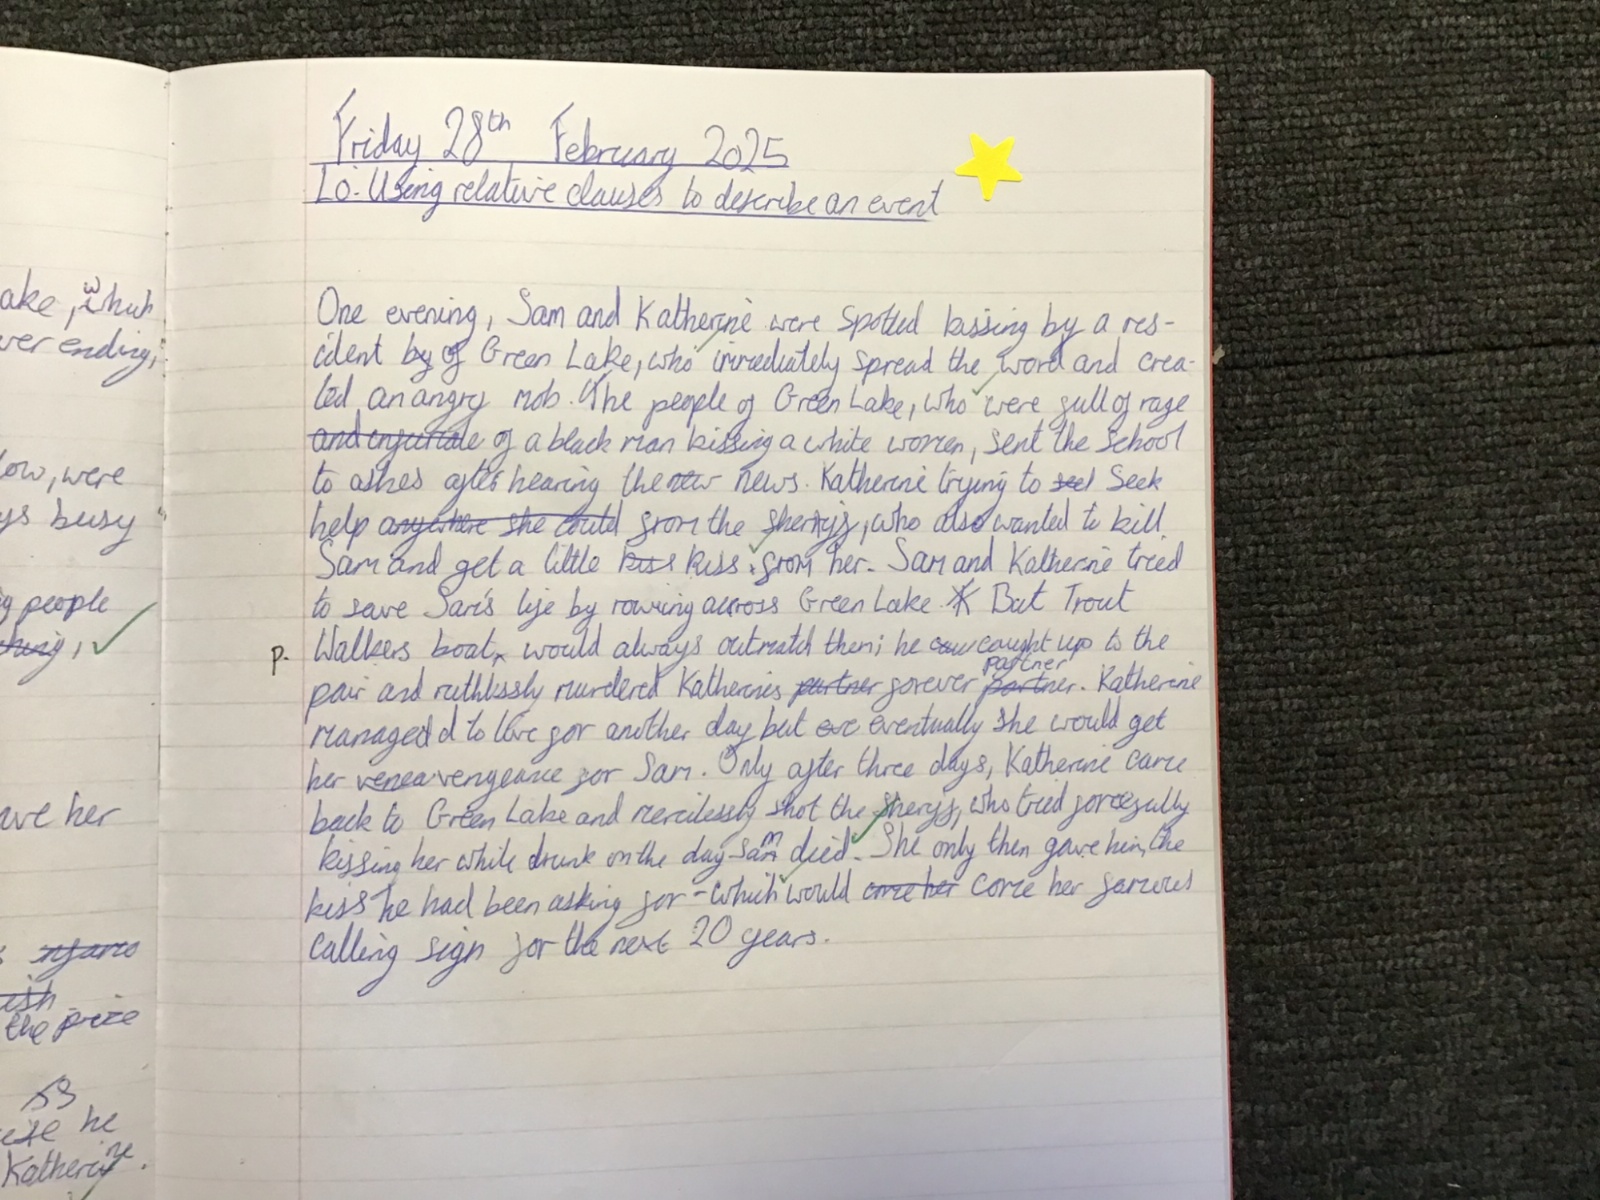 Friday 28th February 2025
Lo: Using relative clauses to describe an event
One evening, Sam and Katherine were spotted kissing by a res-
ident by of Green Lake, who immediately spread the word and crea-
ted an angry mob. The people of Green Lake, who were full of rage
and infuriate of a black man kissing a white women, sent the school
to ashes after hearing the new news. Katherine trying to see Seek
help anywhere she could from the sherrif, who also wanted to kill
Sam and get a little kiss kiss from her. Sam and Katherine tried
to save Sam's life by rowing across Green Lake. But Trout
p. Walkers boat, would always outmatch them; he caught up to the
pair and ruthlissly murdered Katherines partner forever partner partner. Katherine
managed d to live for another day but eve eventually she would get
her venea vengeance for Sam. Only after three days, Katherine came
back to Green Lake and mercilessly shot the sheriff, who tried forcefully
kissing her while drunk on the day Sam died. She only then gave him, the
kiss he had been asking for - which would come her come her famous
calling sign for the next 20 years.
ake, which
ver ending,
low, were
ys busy
g people
ave her
ish
the price
ss
use he
Katherine.